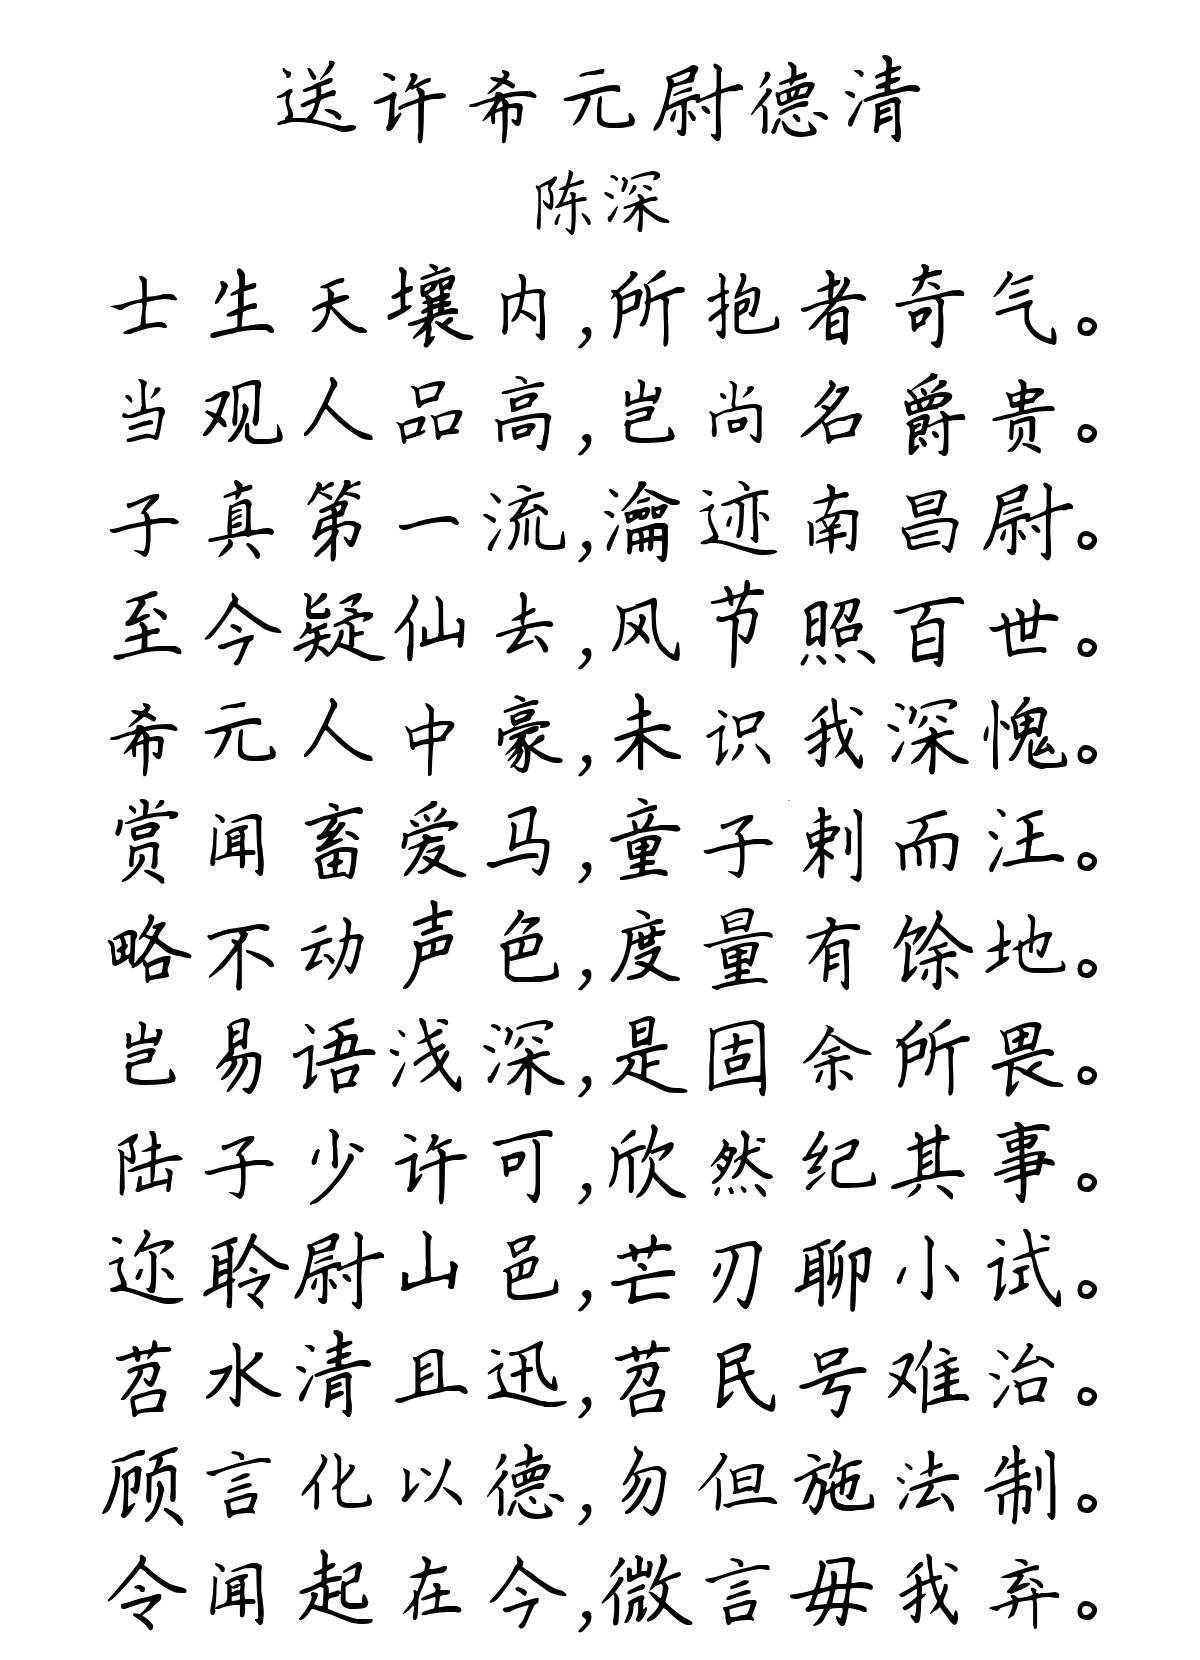 送许希元尉德清
陈深
士生天壤内,所抱者奇气。
当观人品高,岂尚名爵贵。
子真第一流,瀹迹南昌尉。
至今疑仙去,风节照百世。
希元人中豪,未识我深愧。
赏闻畜爱马,童子刺而汪。
略不动声色,度量有馀地。
岂易语浅深,是固余所畏。
陆子少许可,欣然纪其事。
迩聆尉山邑,芒刃聊小试。
苕水清且迅,苕民号难治。
顾言化以德,勿但施法制。
令闻起在今,微言毋我弃。